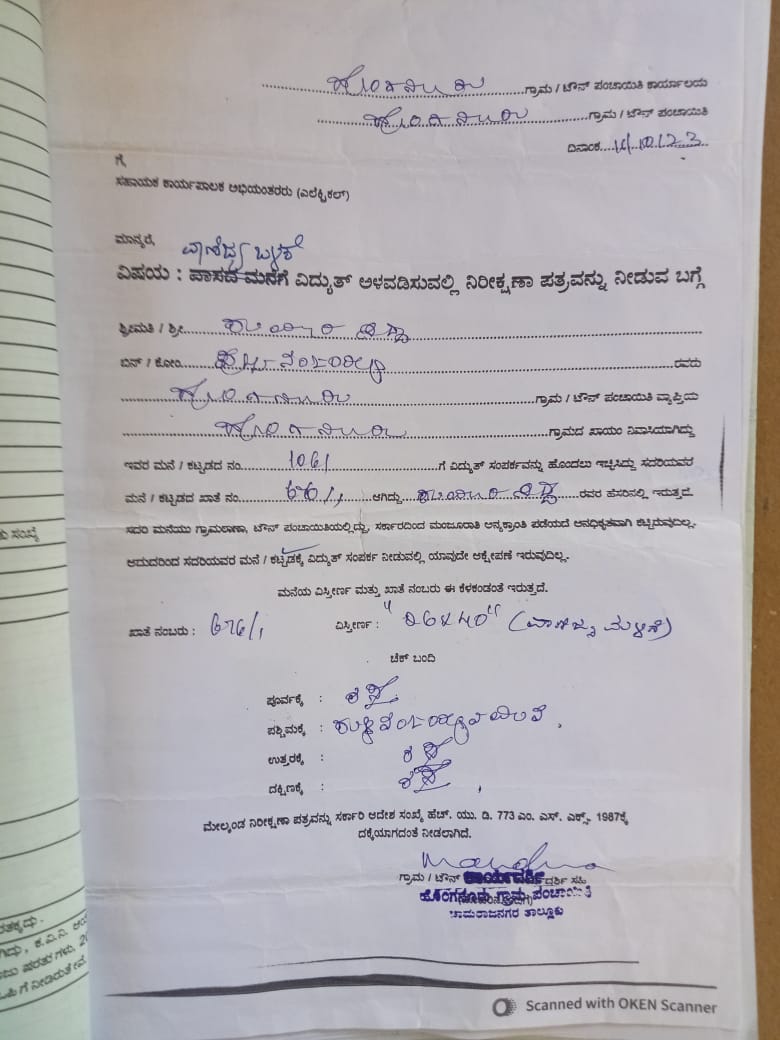 ಹೊಂಗನೂರು ಗ್ರಾಮ / ಟೌನ್ ಪಂಚಾಯಿತಿ ಕಾರ್ಯಾಲಯ
ಹೊಂಗನೂರು ಗ್ರಾಮ / ಟೌನ್ ಪಂಚಾಯಿತಿ
ದಿನಾಂಕ 16/10/23
ಗೆ,
ಸಹಾಯಕ ಕಾರ್ಯಪಾಲಕ ಅಭಿಯಂತರರು (ಎಲೆಕ್ಟ್ರಿಕಲ್)
ಮಾನ್ಯರೆ,
ವಾಣಿಜ್ಯ
ವಿಷಯ : ವಾಸದ ಮನೆಗೆ ವಿದ್ಯುತ್ ಅಳವಡಿಸುವಲ್ಲಿ ನಿರೀಕ್ಷಣಾ ಪತ್ರವನ್ನು ನೀಡುವ ಬಗ್ಗೆ
ಶ್ರೀಮತಿ / ಶ್ರೀ
ಬಿನ್ / ಕೋಂ ರವರು
ಹೊಂಗನೂರು ಗ್ರಾಮ / ಟೌನ್ ಪಂಚಾಯಿತಿ ವ್ಯಾಪ್ತಿಯ
ಹೊಂಗನೂರು ಗ್ರಾಮದ ಖಾಯಂ ನಿವಾಸಿಯಾಗಿದ್ದು
ಇವರ ಮನೆ / ಕಟ್ಟಡದ ನಂ. 1061 ಗೆ ವಿದ್ಯುತ್ ಸಂಪರ್ಕವನ್ನು ಹೊಂದಲು ಇಚ್ಛಿಸಿದ್ದು ಸದರಿಯವರ
ಮನೆ / ಕಟ್ಟಡದ ಖಾತೆ ನಂ. 676/1 ಆಗಿದ್ದು ರವರ ಹೆಸರಿನಲ್ಲಿ ಇರುತ್ತದೆ.
ಸದರಿ ಮನೆಯು ಗ್ರಾಮಠಾಣಾ, ಟೌನ್ ಪಂಚಾಯಿತಿಯಲ್ಲಿದ್ದು, ಸರ್ಕಾರದಿಂದ ಮಂಜೂರಾತಿ ಅನ್ಯಕ್ರಾಂತಿ ಪಡೆಯದೆ ಅನಧಿಕೃತವಾಗಿ ಕಟ್ಟಿರುವುದಿಲ್ಲ.
ಆದುದರಿಂದ ಸದರಿಯವರ ಮನೆ / ಕಟ್ಟಡಕ್ಕೆ ವಿದ್ಯುತ್ ಸಂಪರ್ಕ ನೀಡುವಲ್ಲಿ ಯಾವುದೇ ಆಕ್ಷೇಪಣೆ ಇರುವುದಿಲ್ಲ.
ಮನೆಯ ವಿಸ್ತೀರ್ಣ ಮತ್ತು ಖಾತೆ ನಂಬರು ಈ ಕೆಳಕಂಡಂತೆ ಇರುತ್ತದೆ.
ಖಾತೆ ನಂಬರು : 676/1 ವಿಸ್ತೀರ್ಣ : (ವಾಣಿಜ್ಯ ಮಳಿಗೆ)
ಚೆಕ್ ಬಂದಿ
ಪೂರ್ವಕ್ಕೆ : ರಸ್ತೆ
ಪಶ್ಚಿಮಕ್ಕೆ :
ಉತ್ತರಕ್ಕೆ : ರಸ್ತೆ
ದಕ್ಷಿಣಕ್ಕೆ : ರಸ್ತೆ
ಮೇಲ್ಕಂಡ ನಿರೀಕ್ಷಣಾ ಪತ್ರವನ್ನು ಸರ್ಕಾರಿ ಆದೇಶ ಸಂಖ್ಯೆ ಹೆಚ್. ಯು. ಡಿ. 773 ಎಂ. ಎಸ್. ಎಕ್ಸ್. 1987ಕ್ಕೆ
ದಕ್ಕೆಯಾಗದಂತೆ ನೀಡಲಾಗಿದೆ.
ಗ್ರಾಮ / ಟೌನ್ ಕಾರ್ಯದರ್ಶಿ ಸಹಿ
ಹೊಂಗನೂರು ಗ್ರಾಮ ಪಂಚಾಯಿತಿ
ಚಾಮರಾಜನಗರ ತಾಲ್ಲೂಕು
Scanned with OKEN Scanner